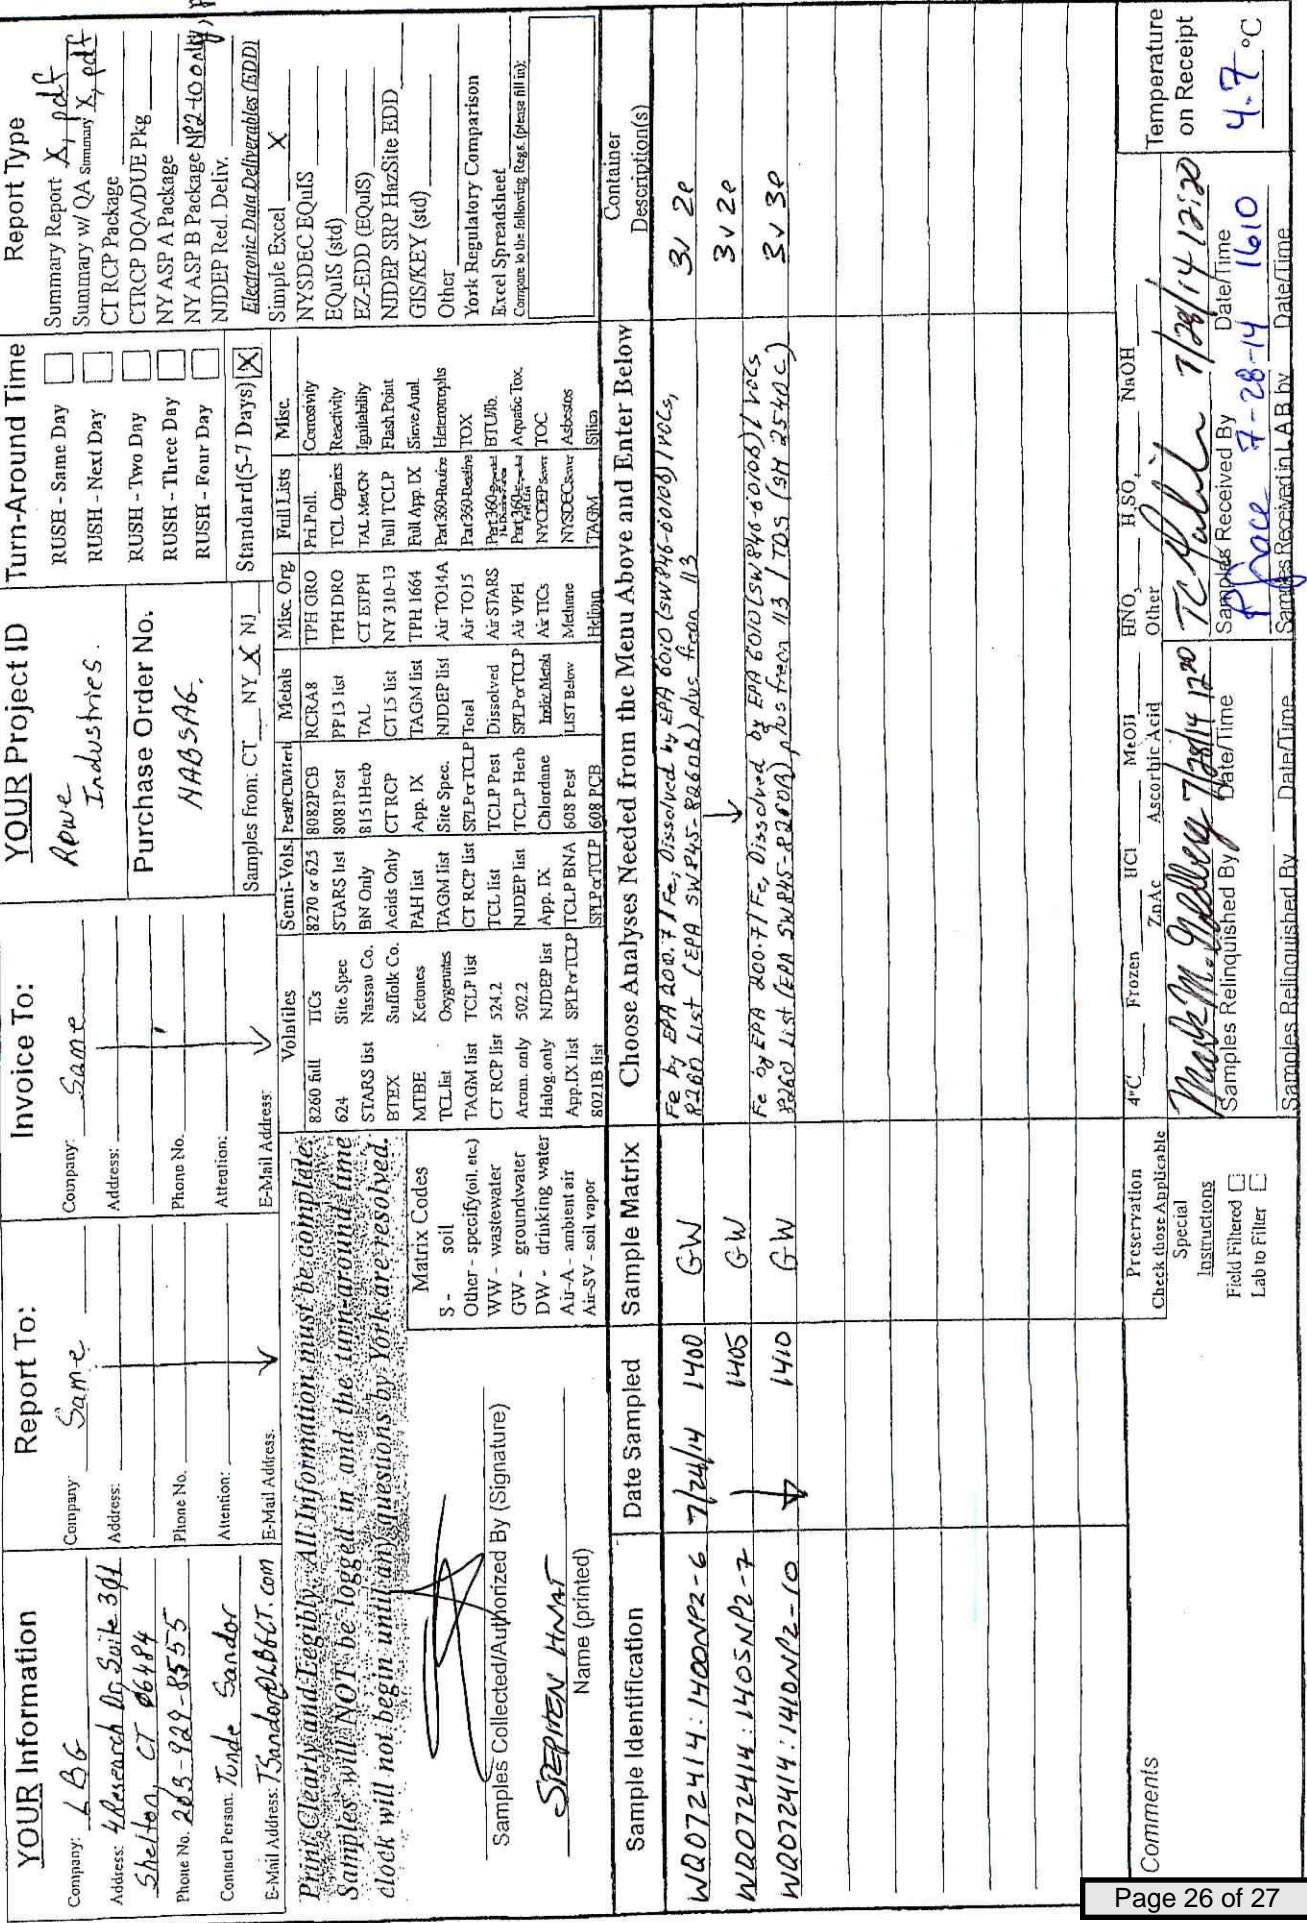 YOUR Information
Company: LBG
Address: 4 Research Dr, Suite 301
Shelton, CT 06484
Phone No. 203-929-8555
Contact Person: Tunde Sandor
E-Mail Address: TSandor@LBGCT.com
Report To:
Company Same
Address:
Phone No.
Attention:
E-Mail Address.
Invoice To:
Company: Same
Address:
Phone No.
Attention:
E-Mail Address:
YOUR Project ID
Rowe
Industries.
Purchase Order No.
NABSAG.
Samples from: CT__ NY X NJ__
Turn-Around Time
RUSH - Same Day
RUSH - Next Day
RUSH - Two Day
RUSH - Three Day
RUSH - Four Day
Standard(5-7 Days) X
Report Type
Summary Report X, pdf
Summary w/ QA Summary X, pdf
CT RCP Package
CTRCP DQA/DUE Pkg
NY ASP A Package
NY ASP B Package NP2-10 only,
NJDEP Red. Deliv.
Electronic Data Deliverables (EDD)
Simple Excel X
NYSDEC EQuIS
EQuIS (std)
EZ-EDD (EQuIS)
NJDEP SRP HazSite EDD
GIS/KEY (std)
Other
York Regulatory Comparison
Excel Spreadsheet
Compare to the following Regs. (please fill in):
Print Clearly and Legibly. All Information must be complete.
Samples will NOT be logged in and the turn-around time
clock will not begin until any questions by York are resolved.
Samples Collected/Authorized By (Signature)
STEPHEN HNAT
Name (printed)
Matrix Codes
S - soil
Other - specify(oil, etc.)
WW - wastewater
GW - groundwater
DW - drinking water
Air-A - ambient air
Air-SV - soil vapor
Volatiles
8260 full TICs
624 Site Spec
STARS list Nassau Co.
BTEX Suffolk Co.
MTBE Ketones
TCL list Oxygenates
TAGM list TCLP list
CT RCP list 524.2
Arom. only 502.2
Halog. only NJDEP list
App.IX list SPLP or TCLP
8021B list
Semi-Vols.
8270 or 625
STARS list
BN Only
Acids Only
PAH list
TAGM list
CT RCP list
TCL list
NJDEP list
App. IX
TCLP BNA
SPLP or TCLP
Pest/PCB/Herb
8082PCB
8081Pest
8151Herb
CT RCP
App. IX
Site Spec.
SPLP or TCLP
TCLP Pest
TCLP Herb
Chlordane
608 Pest
608 PCB
Metals
RCRA8
PP13 list
TAL
CT15 list
TAGM list
NJDEP list
Total
Dissolved
SPLP or TCLP
Indiv. Metals
LIST Below
Misc. Org.
TPH GRO
TPH DRO
CT ETPH
NY 310-13
TPH 1664
Air TO14A
Air TO15
Air STARS
Air VPH
Air TICs
Methane
Helium
Full Lists
Pri.Poll.
TCL Organics
TAL MetCN
Full TCLP
Full App. IX
Part 360-Routine
Part 360-Baseline
NYCDEP Sewer
NYSDEC Sewer
TAGM
Misc.
Corrosivity
Reactivity
Ignitability
Flash Point
Sieve Anal.
Heterotrophs
TOX
BTU/lb.
Aquatic Tox.
TOC
Asbestos
Silica
Sample Identification
Date Sampled
Sample Matrix
Choose Analyses Needed from the Menu Above and Enter Below
Container
Description(s)
WQ072414:1400NP2-6 7/24/14 1400 GW Fe by EPA 200.7/Fe, Dissolved by EPA 6010 (SW846-6010B)/VOCs, 3v 2p
8260 List (EPA SW845-8260B) plus freon 113
WQ072414:1405NP2-7 1405 GW 3v 2p
WQ072414:1410NP2-10 1410 GW Fe by EPA 200.7/Fe, Dissolved by EPA 6010 (SW846-6010B)/VOCs 3v 3p
8260 List (EPA SW845-8260B) plus freon 113 / TDS (SM 2540C)
Comments
Preservation
Check those Applicable
Special
Instructions
Field Filtered
Lab to Filter
4°C__ Frozen HCl MeOH HNO3 H2SO4 NaOH
ZnAc Ascorbic Acid Other
7/28/14 1220
Samples Relinquished By Date/Time
7/28/14 12:20
Samples Received By Date/Time
7-28-14 1610
Samples Relinquished By Date/Time
Samples Received in LAB by Date/Time
Temperature
on Receipt
4.7 °C
Page 26 of 27